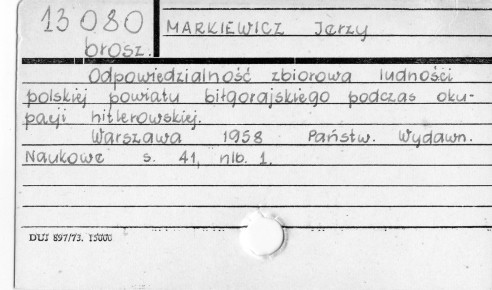 13080
brosz.
MARKIEWICZ Jerzy
Odpowiedzialność zbiorowa ludności
polskiej powiatu biłgorajskiego podczas oku-
pacji hitlerowskiej.
Warszawa 1958 Państw. Wydawn.
Naukowe s. 41, nlb. 1.
DUJ 897/73. 15000